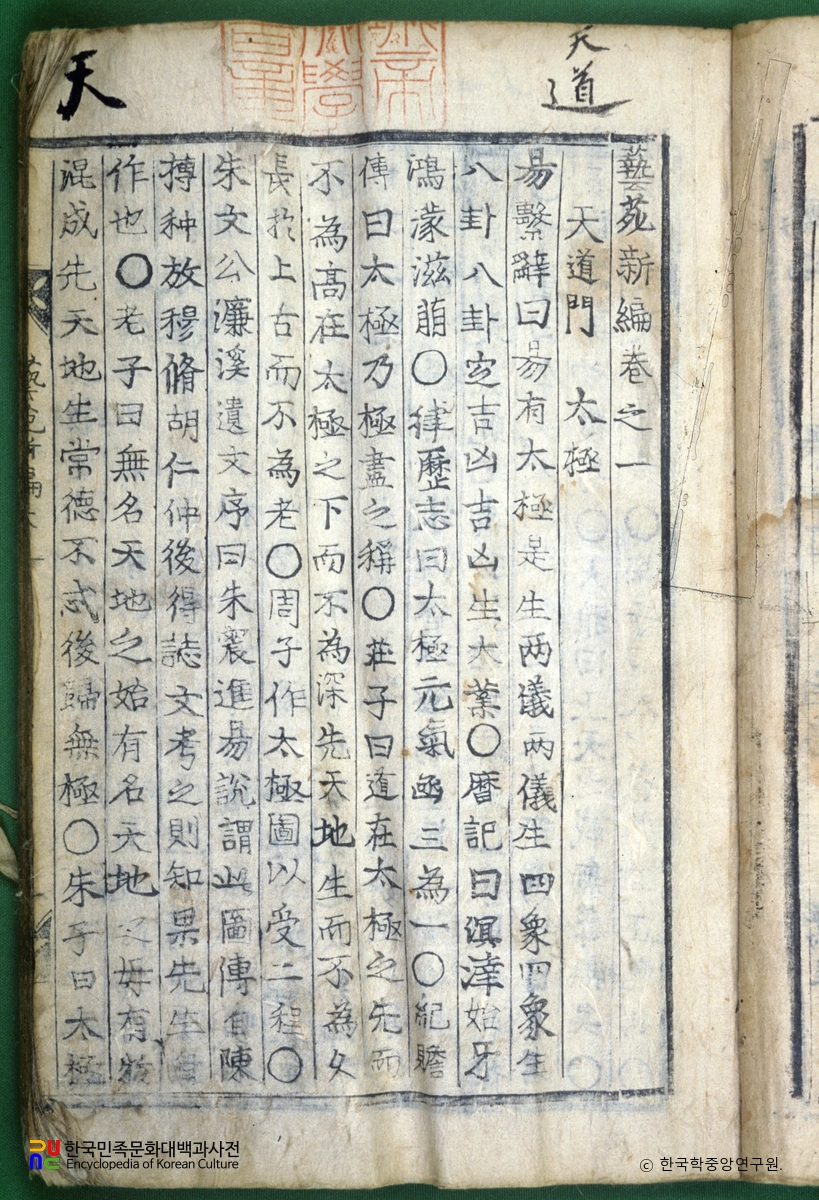 天道
天
藝苑新編卷之一
天道門 太極
易繫辭曰易有太極是生两儀两儀生四象四象生
八卦八卦定吉凶吉凶生大業〇曆記曰溟涬始牙
鴻濛滋萠〇律歷志曰太極元氣函三為一〇紀瞻
傳曰太極乃極盡之稱〇莊子曰道在太極之先而
不為高在太極之下而不為深先天地生而不為久
長於上古而不為老〇周子作太極圖以受二程〇
朱文公濂溪遺文序曰朱震進易說謂此圖傳自陳
摶种放穆脩胡仁仲後得誌文考之則知果先生自
作也〇老子曰無名天地之始有名天地之母有物
混成先天地生常德不忒後歸無極〇朱子曰太極
한국민족문화대백과사전
Encyclopedia of Korean Culture
© 한국학중앙연구원.